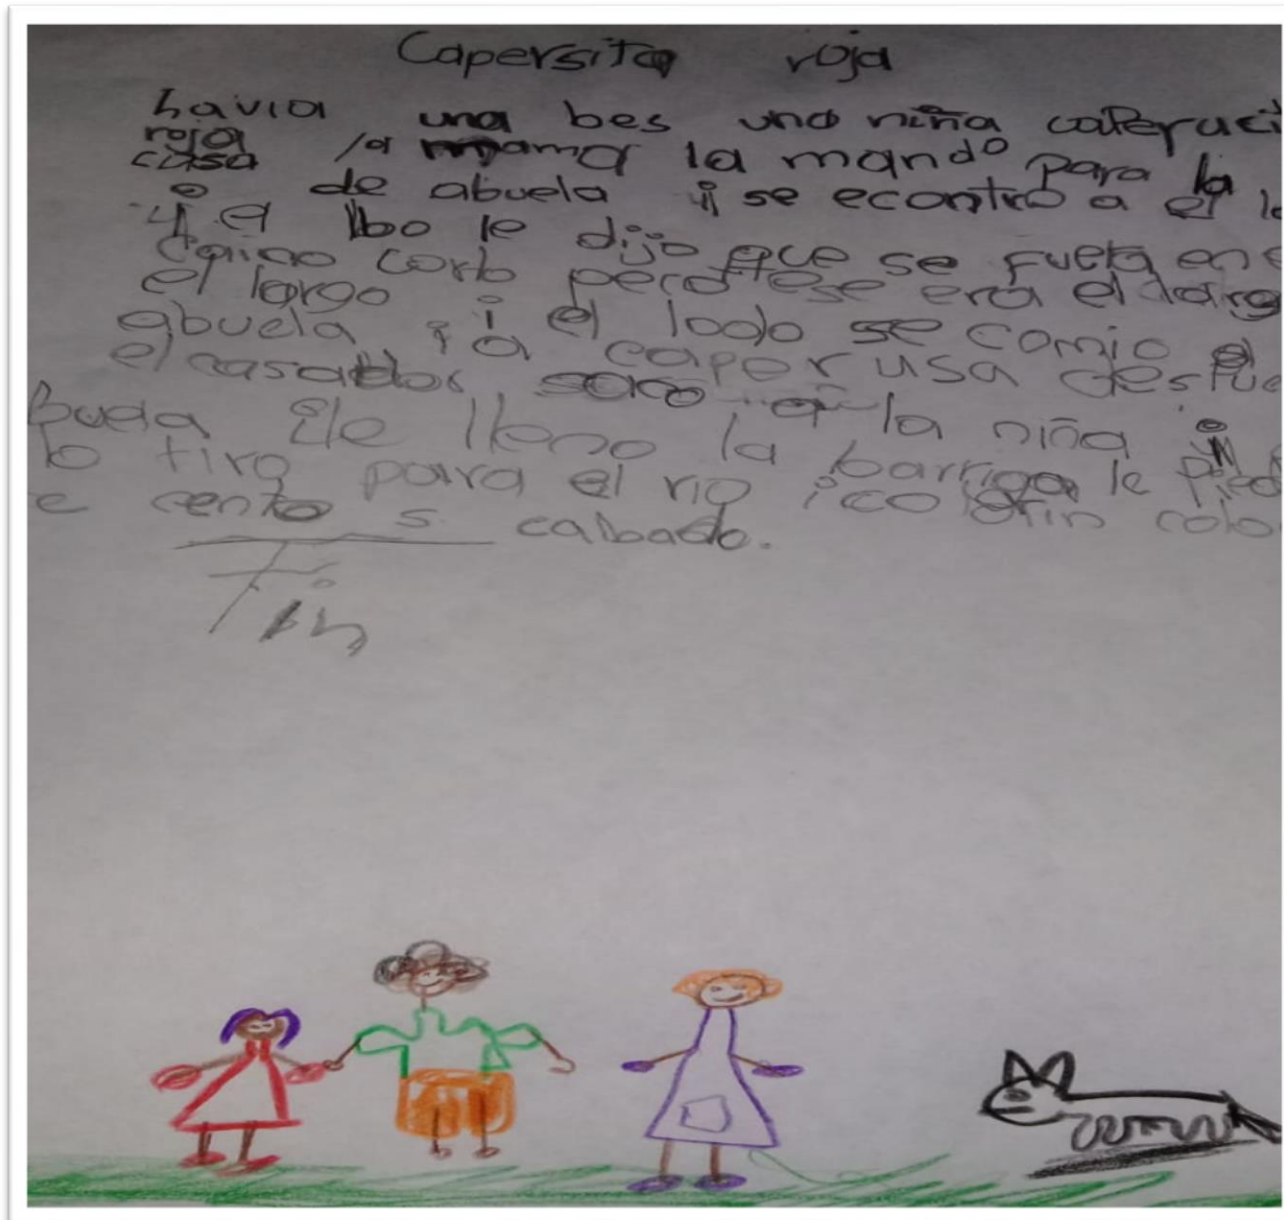 Capersita roja
havia una bes una niña caperuci
roja
casa la mama la mando para la
de abuela y se econtro a el lo
y el lbo le dijo que se fuera en
corto
el largo pero ese era el larg
abuela i a el lodo se comio el
el casador caperusa despue
saco a la niña i
buela ile lleno la barriga le pied
lo tiro para el rio i colorin colo
e cento s calbado.
Fin